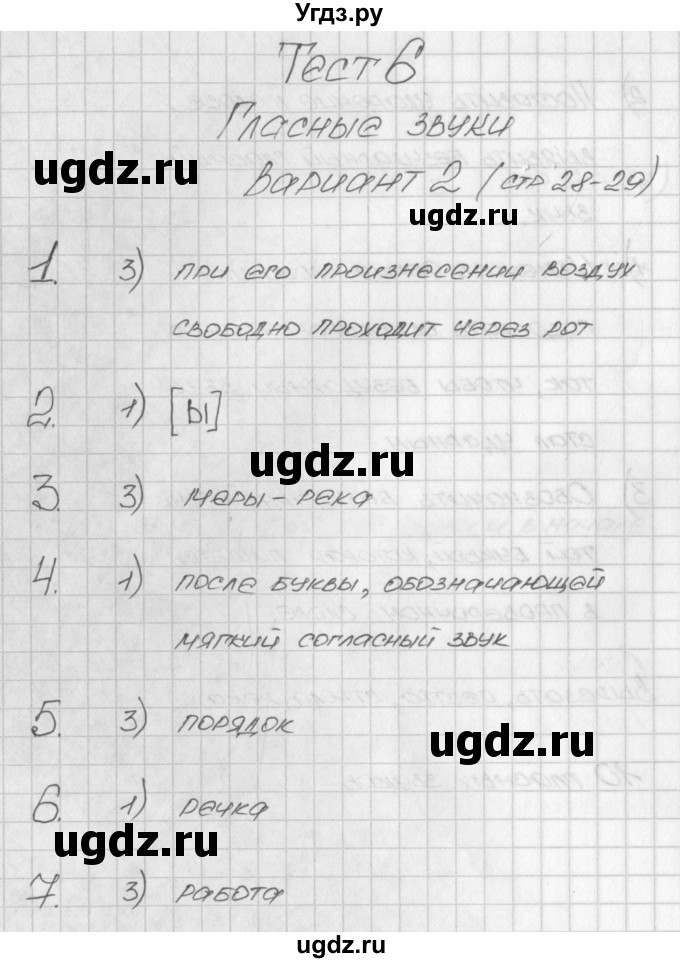 Угдз.ру
Тест 6
Гласные звуки
Вариант 2 (стр 28-29)
1. 3) при его произнесении воздух
свободно проходит через рот
2. 1) [ы]
3. 3) меры-река
4. 1) после буквы, обозначающей
мягкий согласный звук
5. 3) порядок
6. 1) речка
7. 3) работа
ugdz.ru
ugdz.ru
ugdz.ru
ugdz.ru
ugdz.ru
ugdz.ru